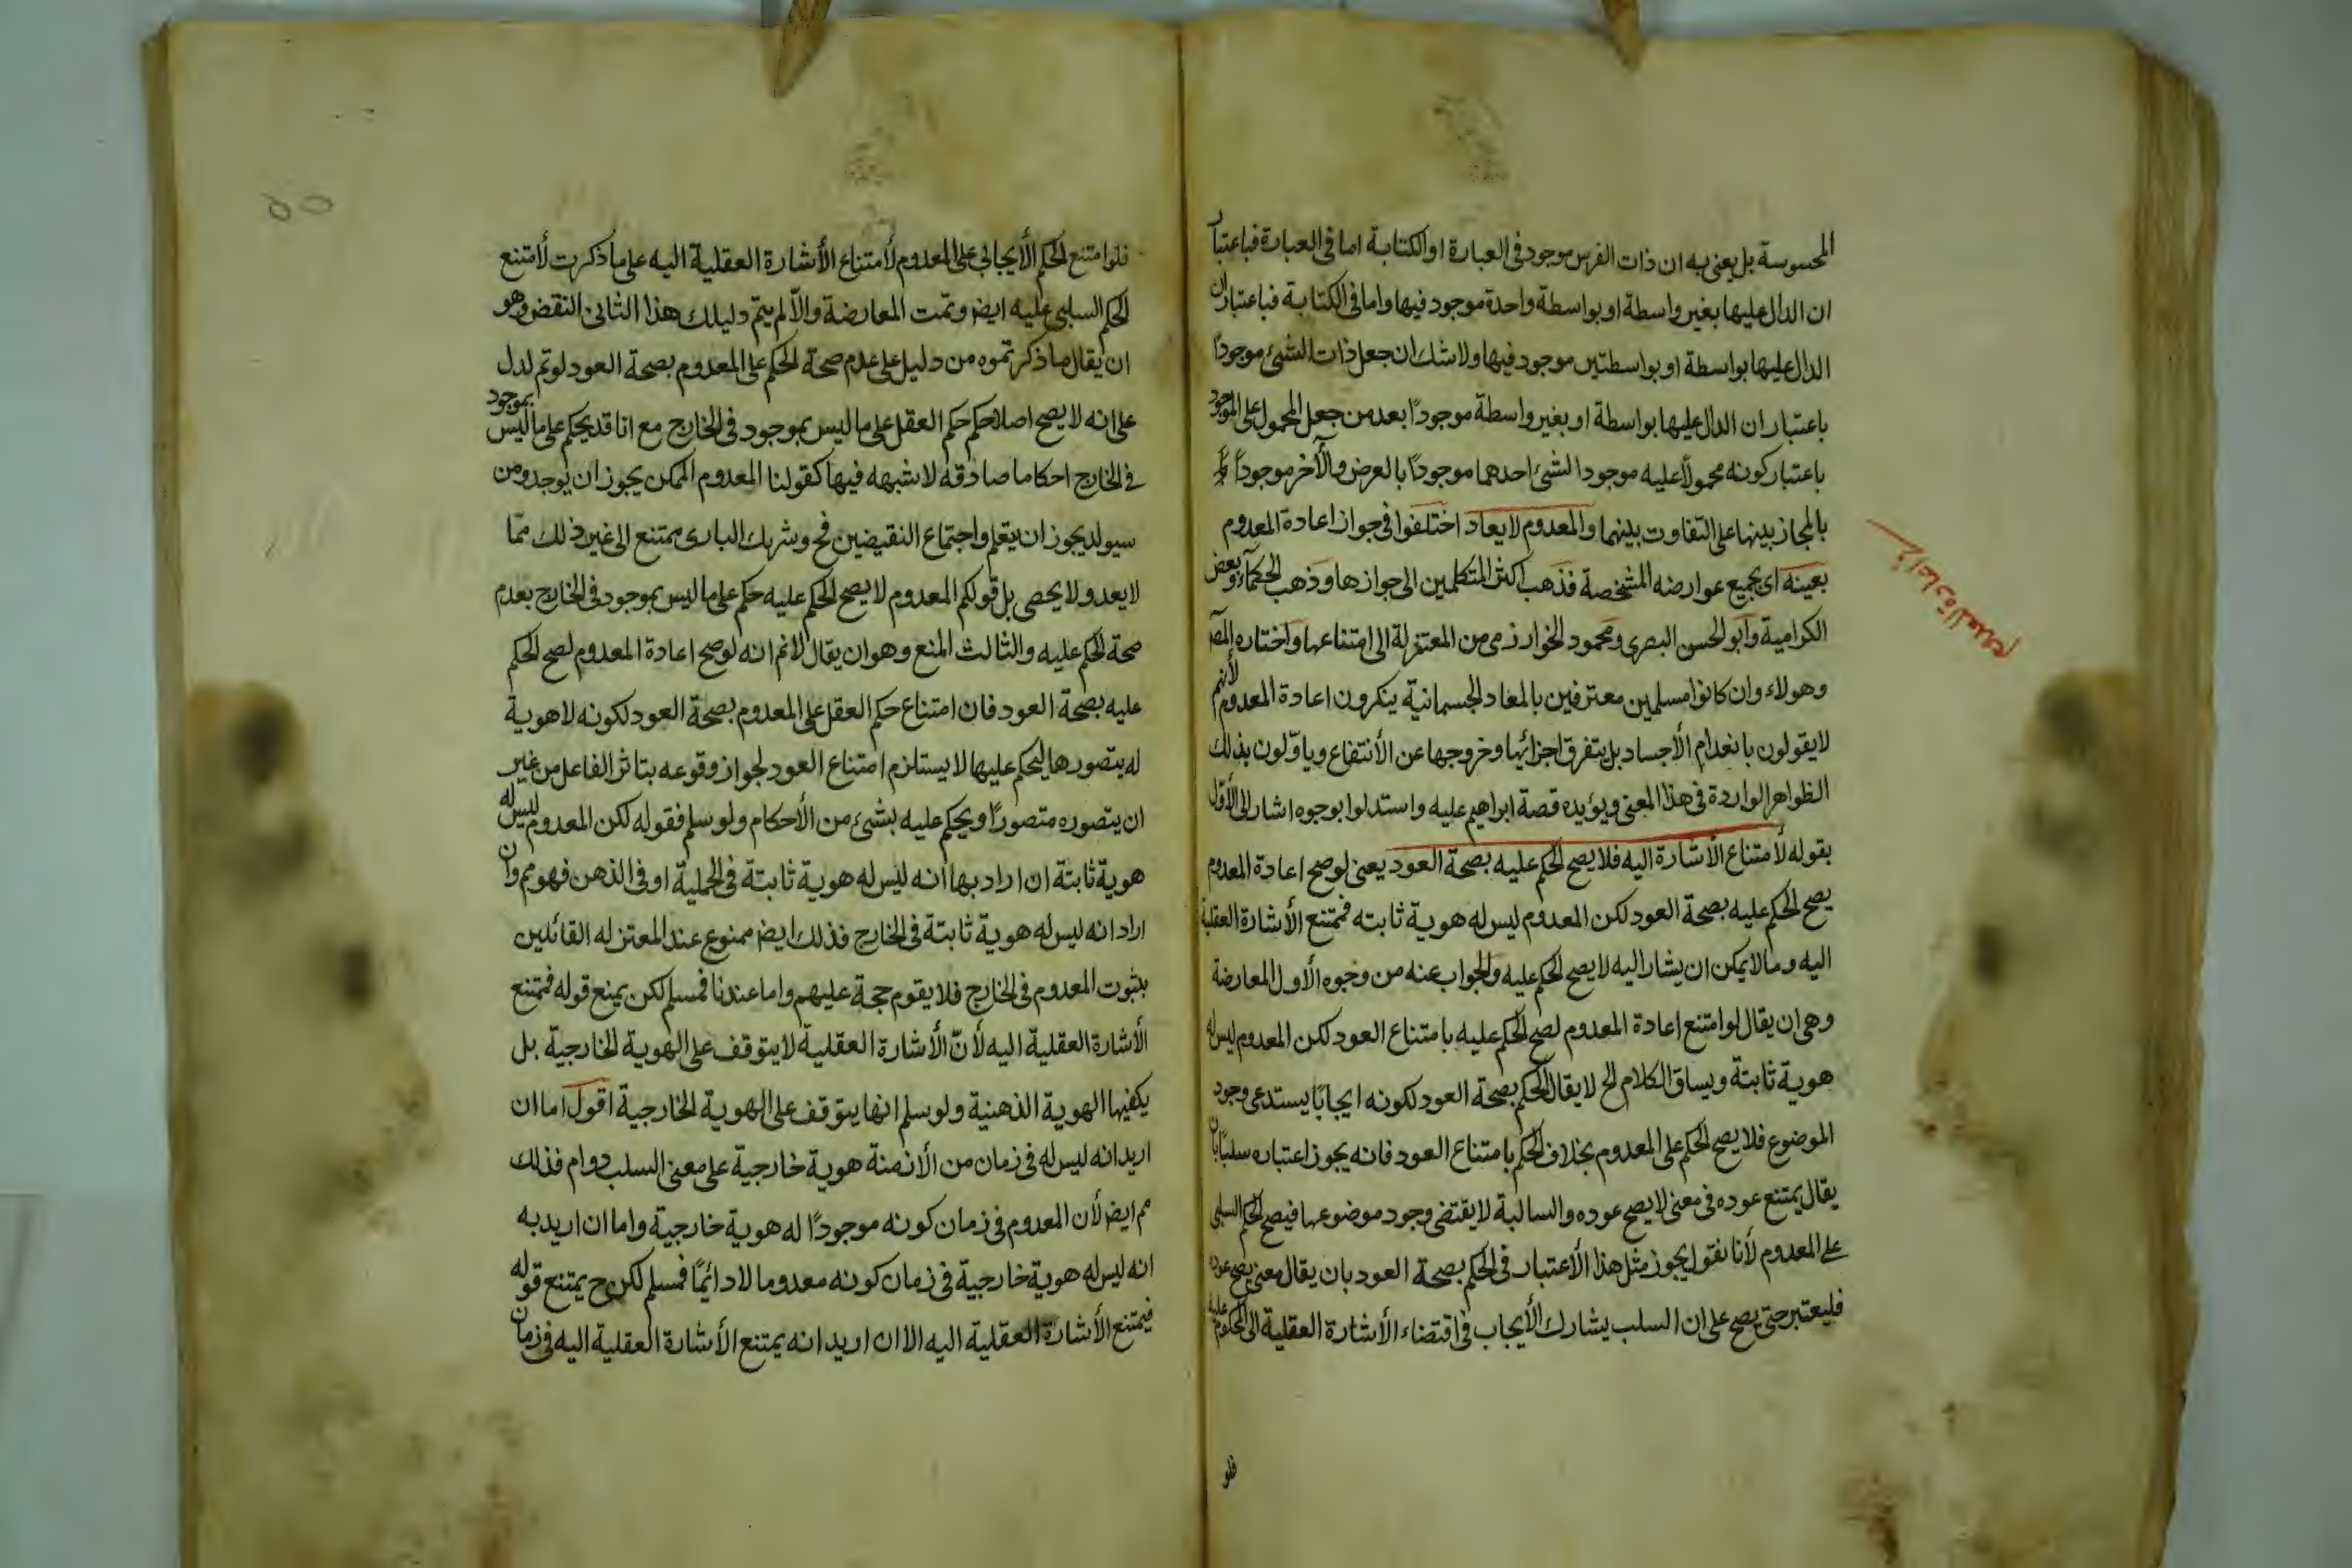 المحسوسة بل يعنى به ان ذات الفرس موجود فى العبارة او الكتابة اما فى العبارة فباعتبار
ان الدال عليها بغير واسطة او بواسطة واحدة موجود فيها واما فى الكتابة فباعتبار ان
الدال عليها بواسطة او بواسطتين موجود فيها ولا شك ان جعل ذات الشئ موجودًا
باعتبار ان الدال عليها بواسطة او بغير واسطة موجودًا بعد من جعل المحمول على الموجود
باعتبار كونه محمولًا عليه موجودا لشئ احدهما موجودًا بالعرض والآخر موجودًا
بالمجاز بينها على التفاوت بينهما والمعدوم لا يعاد اختلفوا فى جواز اعادة المعدوم
بعينه اى بجميع عوارضه المشخصة فذهب اكثر المتكلمين الى جوازها وذهب الحكماء وبعض
الكرامية وابو الحسن البصرى ومحمود الخوارزمى من المعتزلة الى امتناعها واختاره المص
وهولاء وان كانوا مسلمين معترفين بالمعاد الجسمانية ينكرون اعادة المعدوم لأنهم
لا يقولون بانعدام الأجساد بل يتفرق اجزائها وخروجها عن الأنتفاع وياوّلون بذلك
الظواهر الواردة فى هذا المعنى ويؤيده قصة ابراهيم عليه واستدلوا بوجوه اشار الى الأوّل
بقوله لأمتناع الأشارة اليه فلا يصح الحكم عليه بصحة العود يعنى لو صح اعادة المعدوم
يصح الحكم عليه بصحة العود لكن المعدوم ليس له هوية ثابته فمتنع الأشارة العقلية
اليه وما لا يمكن ان يشار اليه لا يصح الحكم عليه والجواب عنه من وجوه الأول المعارضة
وهى ان يقال لو امتنع اعادة المعدوم لصح الحكم عليه بامتناع العود لكن المعدوم ليس له
هوية ثابتة ويساق الكلام الخ لا يقال الحكم بصحة العود لكونه ايجابًا يستدعى وجود
الموضوع فلا يصح الحكم على المعدوم بخلاف الحكم بامتناع العود فانه يجوز اعتباره سلبًا بان
يقال يمتنع عوده فى معنى لا يصح عوده والسالبة لا يقتضى وجود موضوعها فيصح الحكم السلبى
على المعدوم لأنا نقول يجوز مثل هذا الأعتبار فى الحكم بصحة العود بان يقال معنى يصح عوده
فليعتبر حتى يصح على ان السلب يشارك الأيجاب فى اقتضاء الأشارة العقلية الى المحكوم عليه
فلو
فى اعادة المعدوم
٥٥
فلو امتنع الحكم الأيجابى على المعدوم لأمتناع الأشارة العقلية اليه على ما ذكرت لأمتنع
الحكم السلبى عليه ايض وتمت المعارضة والّا لم يتم دليلك هذا الثانى النقض وهو
ان يقال ما ذكرتموه من دليل على عدم صحة الحكم على المعدوم بصحة العود لو تم لدل
على انه لا يصح اصلا حكم حكم العقل على ما ليس بموجود فى الخارج مع انا قد يحكم على ما ليس بموجود
فى الخارج احكاما صادقه لا شبهه فيها كقولنا المعدوم الممكن يجوز ان يوجد ومن
سيولد يجوز ان يتعلم واجتماع النقيضين مح وشريك البارى ممتنع الى غير ذلك ممّا
لا يعد ولا يحصى بل قولكم المعدوم لا يصح الحكم عليه حكم على ما ليس بموجود فى الخارج بعدم
صحة الحكم عليه والثالث المنع وهو ان يقال لا نم انه لو صح اعادة المعدوم لصح الحكم
عليه بصحة العود فان امتناع حكم العقل على المعدوم بصحة العود لكونه لا هوية
له يتصورها ليحكم عليها لا يستلزم امتناع العود لجواز وقوعه بتاثر الفاعل من غير
ان يتصوره متصورًا ويحكم عليه بشئ من الأحكام ولو سلم فقوله لكن المعدوم ليس له
هوية ثابتة ان اراد بها انه ليس له هوية ثابتة فى الجملية او فى الذهن فهو مم وان
اراد انه ليس له هوية ثابتة فى الخارج فذلك ايض ممنوع عند المعتزله القائلين
بثبوت المعدوم فى الخارج فلا يقوم حجة عليهم واما عندنا فمسلم لكن يمنع قوله فمتنع
الأشارة العقلية اليه لأنّ الأشارة العقلية لا يتوقف على الهوية الخارجية بل
يكفيها الهوية الذهنية ولو سلم انها يتوقف على الهوية الخارجية اقول اما ان
اريد انه ليس له فى زمان من الأزمنة هوية خارجية على معنى السلب دوام فذلك
مم ايض لأن المعدوم فى زمان كونه موجودًا له هوية خارجية واما ان اريد به
انه ليس له هوية خارجية فى زمان كونه معدوما لا دائمًا فمسلم لكن ح يمتنع قوله
فيمتنع الأشارة العقلية اليه الا ان اريد انه يمتنع الأشارة العقلية اليه فى زمان